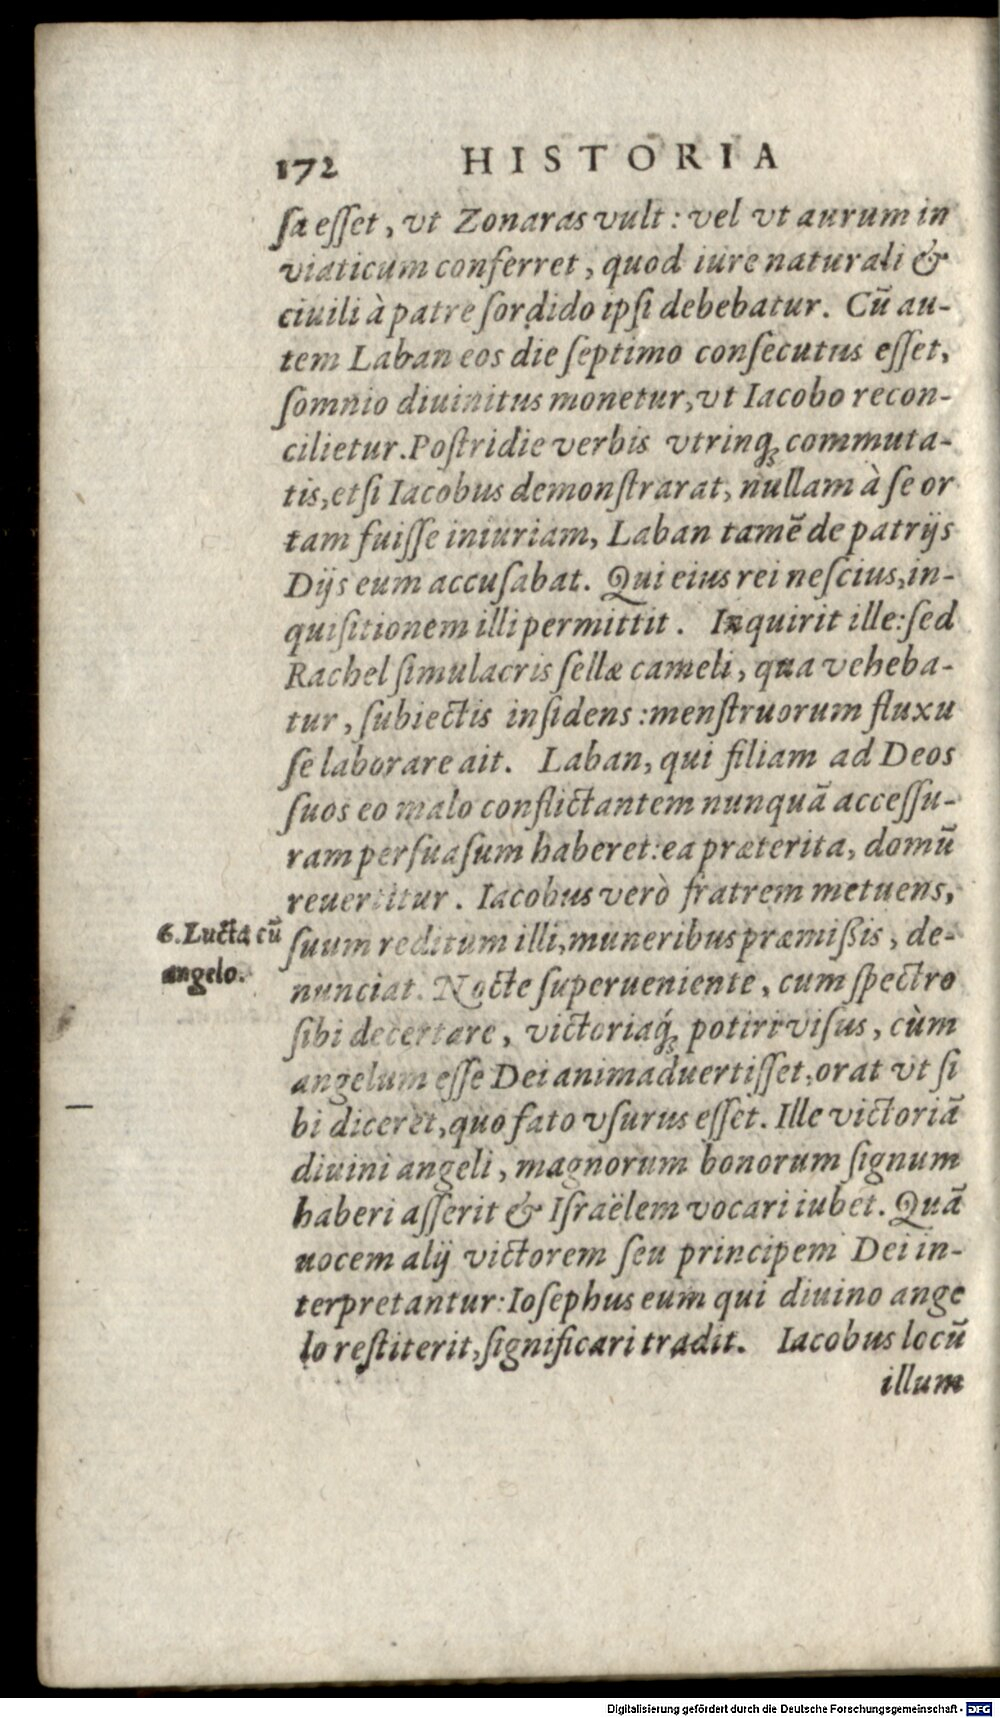 172 HISTORIA
ſa eſſet, vt Zonaras vult: vel vt aurum in
viaticum conferret, quod iure naturali &
ciuili à patre ſordido ipſi debebatur. Cū au-
tem Laban eos die ſeptimo conſecutus eſſet,
ſomnio diuinitus monetur, vt Iacobo recon-
cilietur. Poſtridie verbis vtrinq; commuta-
tis, etſi Iacobus demonſtrarat, nullam à ſe or
tam fuiſſe iniuriam, Laban tamē de patrijs
Dijs eum accuſabat. Qui eius rei neſcius, in-
quiſitionem illi permittit. Inquirit ille: ſed
Rachel ſimulacris ſellæ cameli, qua veheba-
tur, ſubiectis inſidens: menſtruorum fluxu
ſe laborare ait. Laban, qui filiam ad Deos
ſuos eo malo conflictantem nunquā acceſſu-
ram perſuaſum haberet: ea præterita, domū
reuertitur. Iacobus verò fratrem metuens,
6. Lucta cū
angelo.
ſuum reditum illi, muneribus præmiſsis, de-
nunciat. Nocte ſuperueniente, cum ſpectro
ſibi decertare, victoriaq́; potiri viſus, cùm
angelum eſſe Dei animaduertiſſet, orat vt ſi
bi diceret, quo fato vſurus eſſet. Ille victoriā
diuini angeli, magnorum bonorum ſignum
haberi aſſerit & Iſraëlem vocari iubet. Quā
uocem alij victorem ſeu principem Dei in-
terpretantur: Ioſephus eum qui diuino ange
lo reſtiterit, ſignificari tradit. Iacobus locū
illum
Digitalisierung gefördert durch die Deutsche Forschungsgemeinschaft - DFG